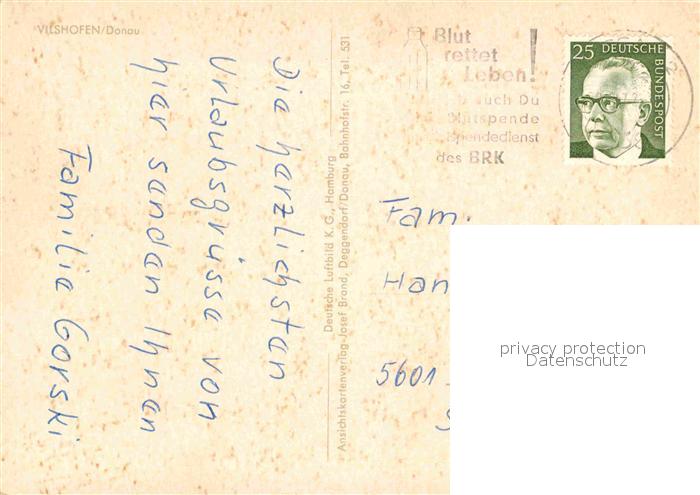 VILSHOFEN/Donau
Die herzlichsten
Urlaubsgrüsse von
hier senden Ihnen
Familie Gorski
Deutsche Luftbild K.G., Hamburg
Ansichtskartenverlag Josef Brand, Deggendorf/Donau, Bahnhofstr. 16, Tel. 531
Blut
rettet
Leben!
auch Du
Blutspende
spendedienst
des BRK
25 DEUTSCHE
BUNDESPOST
Fam.
Han
5601
privacy protection
Datenschutz